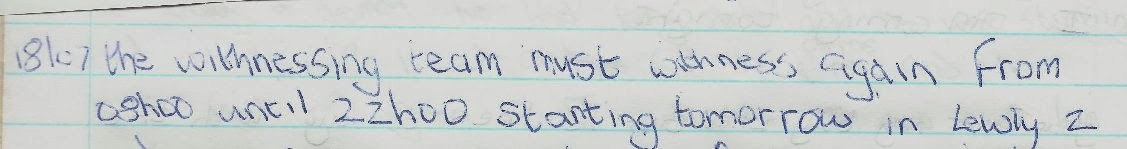 18/07 the withnessing team must withness again from
08h00 until 22h00 starting tomorrow in Lewly 2